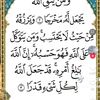 وَمَنْ يَتَّقِ اللَّهَ
يَجْعَلْ لَهُ مَخْرَجًا ۝ وَيَرْزُقْهُ
مِنْ حَيْثُ لَا يَحْتَسِبُ وَمَنْ يَتَوَكَّلْ
عَلَى اللَّهِ فَهُوَ حَسْبُهُ إِنَّ اللَّهَ
بَالِغُ أَمْرِهِ قَدْ جَعَلَ اللَّهُ
لِكُلِّ شَيْءٍ قَدْرًا ۝